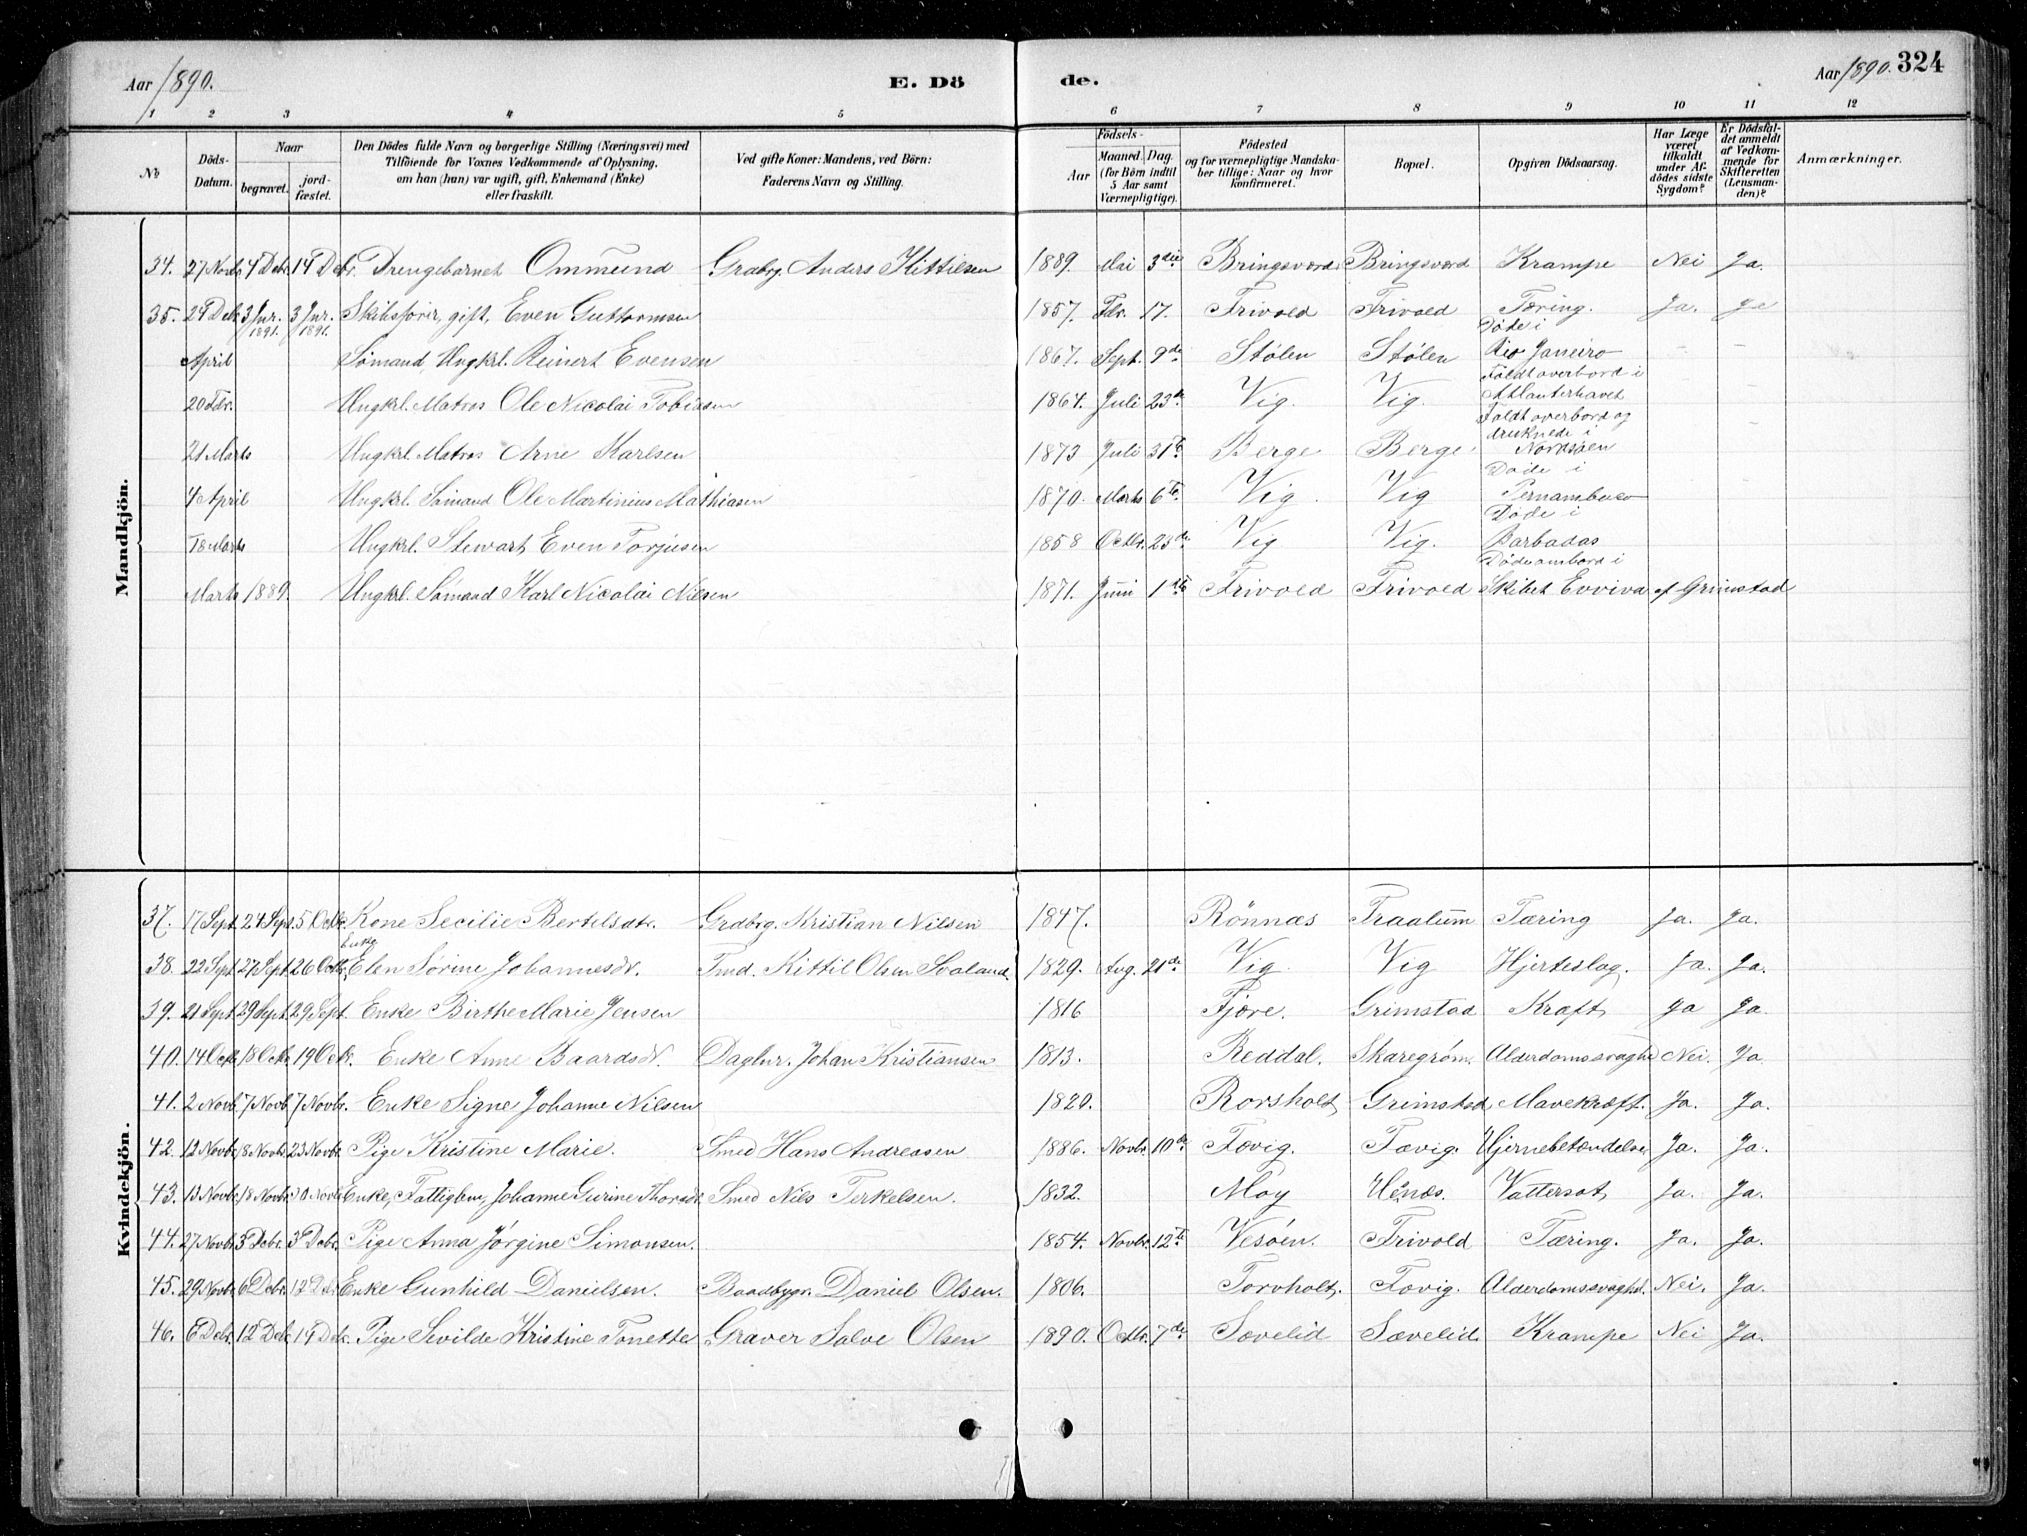 Aar 1890. E. Dö de. Aar 1890. 324
1 2 3 4 5 6 7 8 9 10 11 12
No
Döds-Datum.
Naar begravet. jordfæstet.
Den Dödes fulde Navn og borgerlige Stilling (Næringsvei) med Tilföiende for Voxnes Vedkommende af Oplysning, om han (hun) var ugift, gift, Enkemand (Enke) eller fraskilt.
Ved gifte Koner: Mandens, ved Börn: Faderens Navn og Stilling.
Födsels- Aar Maaned. Dag. (for Börn indtil 5 Aar samt Værnepligtige).
Födested og for værnepligtige Mandskaber tillige: Naar og hvor konfirmeret.
Bopæl.
Opgiven Dödsaarsag.
Har Læge været tilkaldt under Afdödes sidste Sygdom?
Er Dödsfaldet anmeldt af Vedkommende for Skifteretten (Lensmanden)?
Anmærkninger.
Mandkjön.
34. 27 Novb. 4 Debr. 14 Debr. Drengebarnet Ommund Grdbrg. Anders Kittilsen 1889. Mai 3die Bringsværd Bringsværd Krampe Nei Ja.
35. 29 Debr. 3 Jnr. 1891. 3 Jnr. 1891. Skibsförer, gift, Even Guttormsen 1857. Fbr. 17. Frivold Frivold Tæring. Ja. Ja
April Sömand, Ungkrl. Reinert Evensen 1867. Sept. 9de Stölen Stölen Döde i Rio Janeiro
20 Fbr. Ungkrl. Matros Ole Nicolai Tobiasen 1864. Juli 23de Vig. Vig. Faldt overbord i Atlanterhavet
21 Marts Ungkrl. Matros Arne Karlsen 1873 Juli 31te Berge Berge Faldt overbord og druknede i Nordsöen
4 April Ungkrl. Sömand Ole Martinius Mathiasen 1870. Marts 6te Vig. Vig Döde i Pernambuco
18 Marts Ungkrl. Stewart Even Torjusen 1858 Octbr. 23de Vig Vig. Döde i Barbadas
Marts 1889. Ungkrl. Sömand Karl Nicolai Nilsen 1871. Juni 1ste Frivold Frivold Döde ombord i Skibet Evviva af Grimstad
Kvindekjön.
37. 17 Sept. 24 Sept. 5 Octbr. Kone Secilie Bertelsdtr. Grdbrg. Kristian Nilsen 1847. Rönnæs Traalum Tæring Ja. Ja.
38. 22 Sept. 27 Sept. 26 Octbr. Enke Elen Sörine Johannesdtr. Tmd. Kittil Olsen Svaland 1829. Aug. 21de Vig. Vig Hjerteslag. Ja. Ja.
39. 21 Sept. 29 Sept. 29 Sept. Enke Birthe Marie Jensen 1816 Fjære. Grimstad Kræft Ja Ja.
40. 14 Octbr. 18 Octbr. 19 Octbr. Enke Anne Baardsdtr. Daglnr. Johan Kristiansen 1813. Reddal. Skaregröm Alderdomssvaghed Nei. Ja
41. 2 Novb. 7 Novb. 7 Novbr. Enke Signe Johanne Nilsen 1820. Rorsholt Grimstad Mavekræft. Ja. Ja.
42. 12 Novbr. 18 Novbr. 23 Novbr. Pige Kristine Marie. Smed Hans Andreasen 1886. Novbr. 10de Fævig. Fævig. Hjernebetændelse Ja. Ja.
43. 13 Novbr. 18 Novbr. 30 Novbr. Enke, Fattiglem, Johanne Gurine Thorsdtr. Smed Nils Terkelsen. 1832. Moy Vattersot Ja. Ja.
44. 27 Novbr. 3 Debr. 3 Debr. Pige Anna Jörgine Simonsen. 1854. Novbr. 12te Vesöen. Frivold Tæring. Ja. Ja.
45. 29 Novbr. 6 Debr. 12 Debr. Enke Gunhild Danielsen. Baadbygr. Daniel Olsen. 1806. Torvholt. Fævig. Alderdomssvaghd. Nei. Ja.
46. 6 Debr. 12 Debr. 14 Debr. Pige Sevilde Kristine Tonette Graver Salve Olsen 1890. Octbr. 7de Sævelid Sævelid. Krampe Nei Ja.